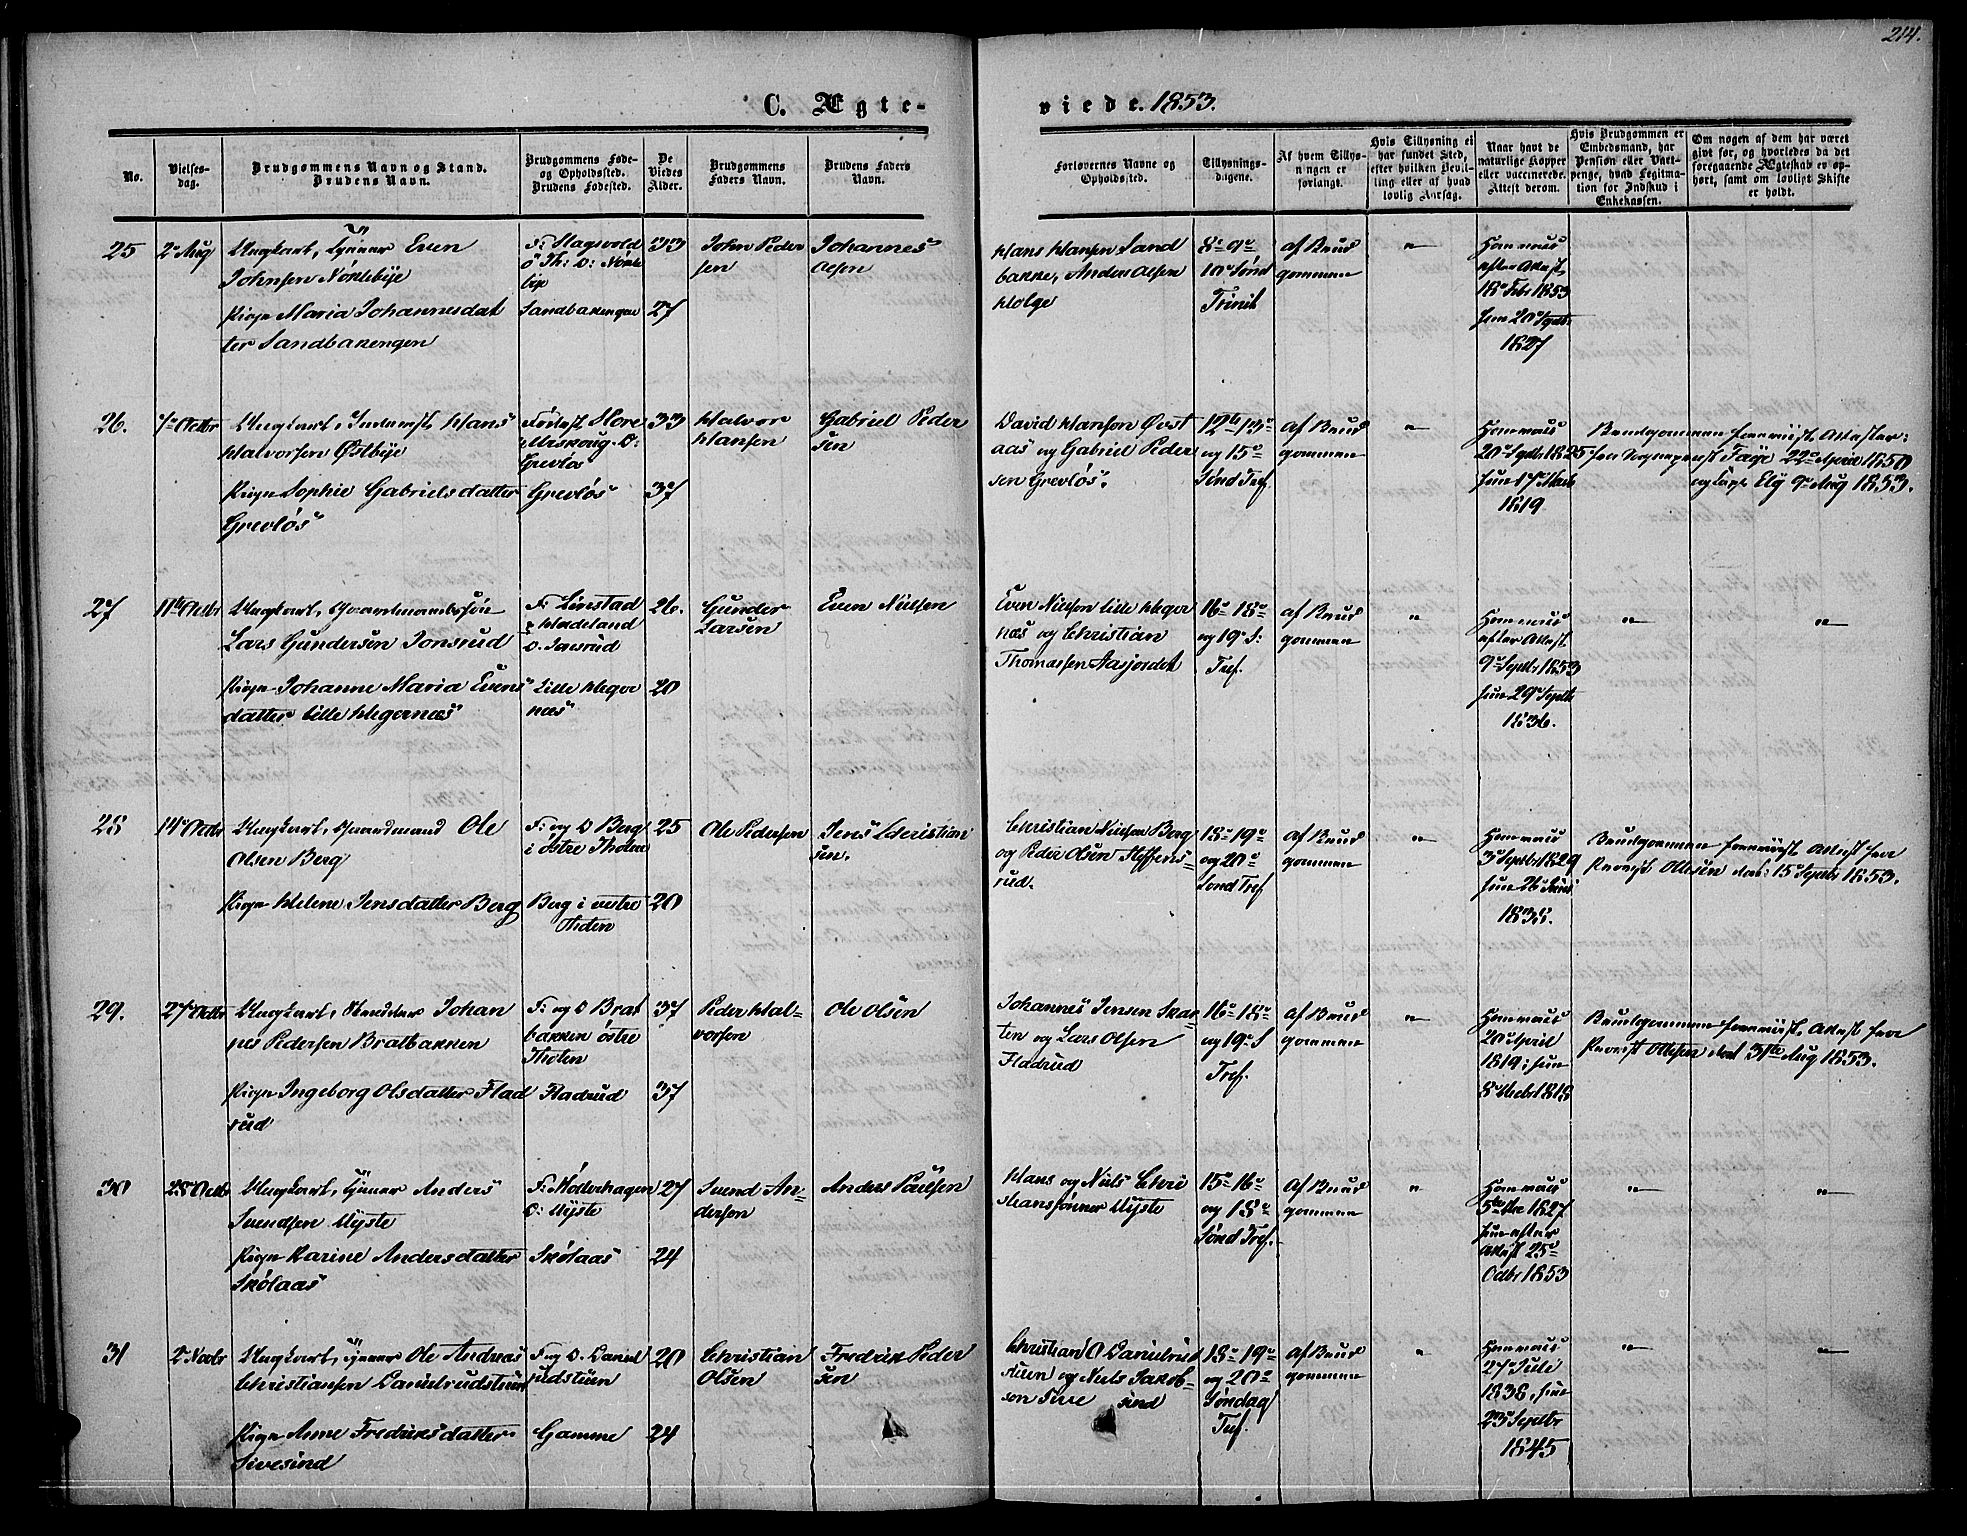 214.
C. Ægte-
viede. 1853.
No.
Vielses-
dag.
Brudgommens Navn og Stand.
Brudens Navn.
Brudgommens Føde-
og Opholdssted.
Brudens Fødested.
De
Viedes
Alder.
Brudgommens
Faders Navn.
Brudens Faders
Navn.
Forlovernes Navne og
Opholdssted.
Tillysnings-
dagene.
Af hvem Tillys-
ningen er
forlangt.
Hvis Tillysning ei
har fundet Sted,
efter hvilken Bevil-
ling eller af hvad
lovlig Aarsag.
Naar havt de
naturlige Kopper
eller vaccinerede.
Attest derom.
Hvis Brudgommen er
Embedsmand, har
Pension eller Vart-
penge, hvad Legitima-
tion for Indskud i
Enkekassen.
Om nogen af dem har været
gift før, og hvorledes da det
foregaaende Ægteskab er op-
hørt, samt om lovligt Skifte
er holdt.
25
2 Aug
Ungkarl, Tjener Even
Johnsen Nøklebye
Pigen Maria Johannesdat
ter Sandbakengen
Sandbakengen
30
27
John Peder
sen
Johannes
Olsen
Hans Hansen Sand
bakke, Anders Olsen
Holge
8de 9de
10de Sønd
Trinit
af Brud
gommen
Ham vacc
efter Attest
18de Febr 1853
hun 20 Septbr
1827
26.
7de Octbr
Ungkarl, Inderst Hans
Halvorsen Østbye
Pigen Sophie Gabrielsdatter
Grevløs
Grevløs
Grevløs
33
37
Halvor
Hansen
Gabriel Peder
sen
David Hansen Øvst
aas og Gabriel Peder
sen Grevløs.
12te 13de
og 15de
Sønd Tref
af Brud
gommen
Ham vacc
20de Septbr 1825
hun 17de
1819
Brudgommen foreviist Attester:
fra Sognepræst Faye 22de April 1850
og Capt Elg 9de Aug 1853.
27
11te Octbr
Ungkarl, Gaardmandssøn
Lars Gundersen Jonsrud
Pigen Johanne Maria Evens
datter Lille Hegernæs
F: Linstad
Hadeland
O. Jonsrud
Lille Heger
næs
26.
20
Gunder
Larsen
Even Nielsen
Even Nielsen Lille Heger
næs og Christian
Thomassen Aasjordet
16de 18de
og 19de S.
Tref.
af Brud
gommen
Ham vacc
efter Attest
9de Septbr 1853
hun 29de Septbr
1836.
28
14de Octbr
Ungkarl, Gaardmand Ole
Olsen Berg
Pigen Helene Jensdatter Berg
F: og O Berg
i østre Thoten
Berg i vestre
Thoten
25
20
Ole Pedersen
Jens Christian
sen.
Christian Nielsen Berg
og Peder Olsen Steffens-
rud.
18de 19de
og 20de
Sønd Tref
af Brud
gommen
Ham vacc
3de Septbr 1829
hun 26de Juni
1835.
Brudgommen foreviist Attest fra
Provst Ottesen dat: 15de Septbr 1853.
29.
27de Octbr
Ungkarl, Snedker Johan
nes Pedersen Bratbakken
Pigen Ingeborg Olsdatter Flad
rud
F: og O Brat
bakken østre
Thoten
Fladrud
37
37
Peder Hal-
vorsen
Ole Olsen
Johannes Jensen Skar
ten og Lars Olsen
Fladrud
16de 18de
og 19de S
Tref.
af Brud
gommen
Ham vacc
20de April
1819; hun
8de Octbr 1818
Brudgommen foreviist Attest fra
Provst Ottesen dat 31te Aug 1853.
30
28de Octbr
Ungkarl, Tjener Anders
Svendsen Myste
Pigen Karine Andersdatter
Skølaas
F: Møllerhagen
O: Myste
Skølaas
27
24
Svend An-
dersen
Anders Paulsen
Hans og Niels Chri
stiansønner Myste
15de 16de
og 18de
Sønd Tref.
af Brud
gommen
Ham vacc
1827
hun efter
Attest 25de
Octbr 1853
31
2 Novbr
Ungkarl, Tjener Ole Andreas
Christiansen Danielrudstuen
Pigen Anne Fredriksdatter
Sivesind
F og O. Daniel
rudstuen
Gamme
20
24
Christian
Olsen
Fredrik Peder
sen
Christian O Danielrud
stuen og Niels Jakob-
sen Sive sind
18de 19de
og 20de
Søndag
Tref.
af Brud
gommen
Ham vacc
27de Juli
1838, hun
23de Septbr
1845